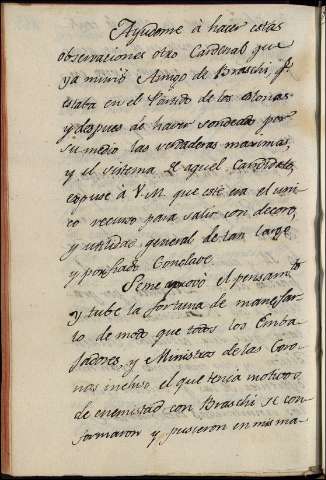 Ayudome à hacer estas
observaciones otro Cardenal que
ya murió Amigo de Braschi q.e
estaba en el Partido de los
y despues de haver sondeado por
su medio las verdaderas maximas,
y el sistema de aquel Candidato,
expuse à V.M. que este era el uni-
co recurso para salir con decoro,
y utilidad general de tan largo
y porfiado Conclave.
Seme aprovó el pensam.to
y tube la fortuna de manejar-
lo de modo que todos los Emba-
jadores, y Ministros de las Coro-
nas incluso el que tenia motivos
de enemistad con Braschi se con-
formaron y pusieron en mis ma-